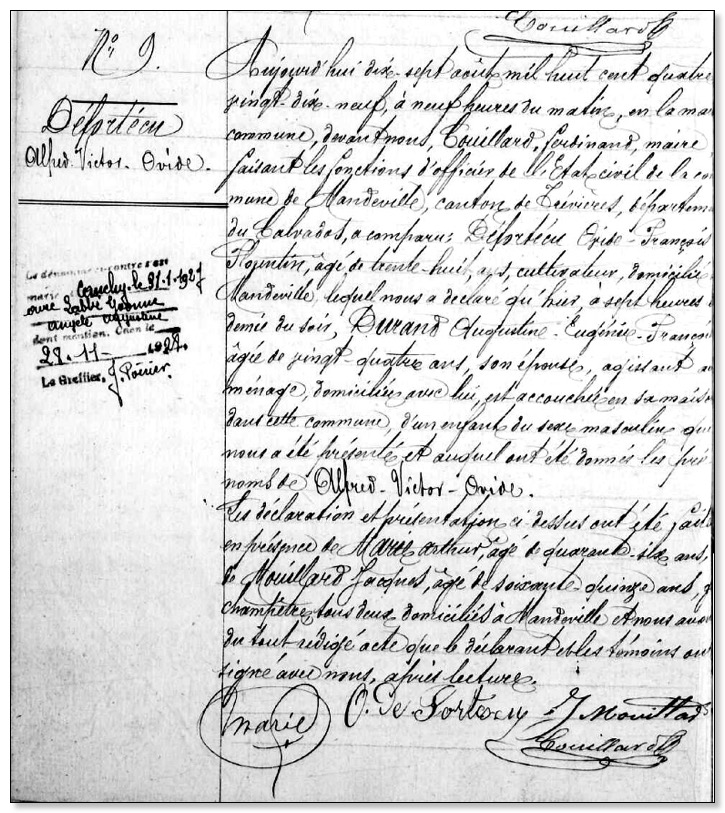 Touillard
N° 9.
Défortécu
Alfred-Victor-Ovide.
Le dénommé ci-contre s'est
marié à le 31-1-1927
avec Labbé Yvonne
Angèle Augustine
dont mention. Caen le
28-11-1927.
Le Greffier, J. Poirier.
Aujourd'hui dix-sept août mil huit cent quatre
vingt-dix-neuf, à neuf heures du matin, en la mai
commune, devant nous, Touillard, Ferdinand, maire
faisant les fonctions d'officier de l'Etat civil de la co
mune de Mandeville, canton de Trévières, départem
du Calvados, a comparu: Défortécu Ovide-François
Florentin, âgé de trente-huit ans, cultivateur, domicilié
Mandeville, lequel nous a déclaré qu'hier, à sept heures
demie du soir, Durand Augustine-Eugénie-Françoi
âgée de vingt-quatre ans, son épouse, agissant au
ménage, domiciliée avec lui, est accouchée en sa maiso
dans cette commune, d'un enfant du sexe masculin qu
nous a été présenté et auquel ont été donnés les pré
noms de Alfred-Victor-Ovide.
Les déclaration et présentation ci-dessus ont été fait
en présence de Marie Arthur, âgé de quarante-six ans,
de Mouillard Jacques, âgé de soixante quinze ans, g
champêtre, tous deux domiciliés à Mandeville et nous avon
du tout rédigé acte que le déclarant et les témoins on
signé avec nous, après lecture.
Marie O. De Fortécu J Mouillard
Touillard